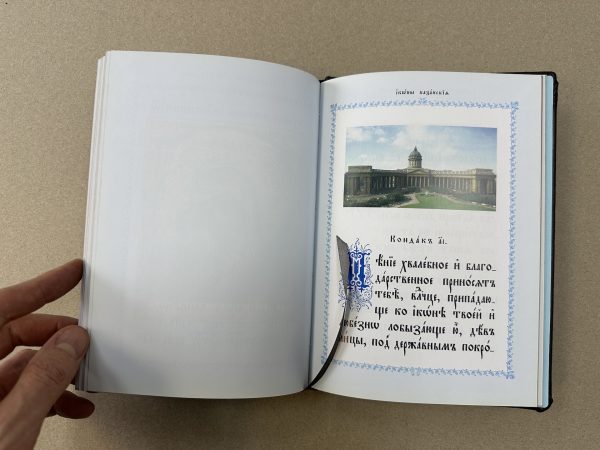 і҆кѡ́ны каза́нскїѧ
Конда́къ а҃і.
Пѣ́нїе хвале́бное и҆ благо-
да́рственное прино́сѧтъ
тебѣ̀, влⷣчце, припа́даю-
ще ко і҆кѡ́нѣ твое́й и҆
любе́знѡ лобыза́юще ю҆̀, дѣ́в
под держа́вным покро́-